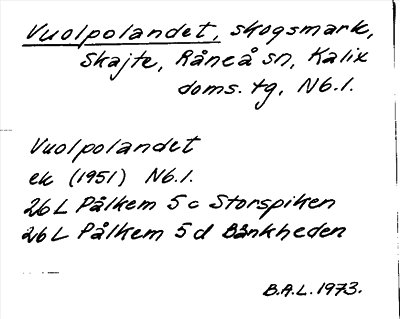 Vuolpolandet, skogsmark,
Skajte, Råneå sn, Kalix
doms. tg, Nb.l.
Vuolpolandet
ek (1951) Nb.l.
26 L Pålkem 5 c Storspiken
26 L Pålkem 5 d Bänkheden
B.A.L. 1973.